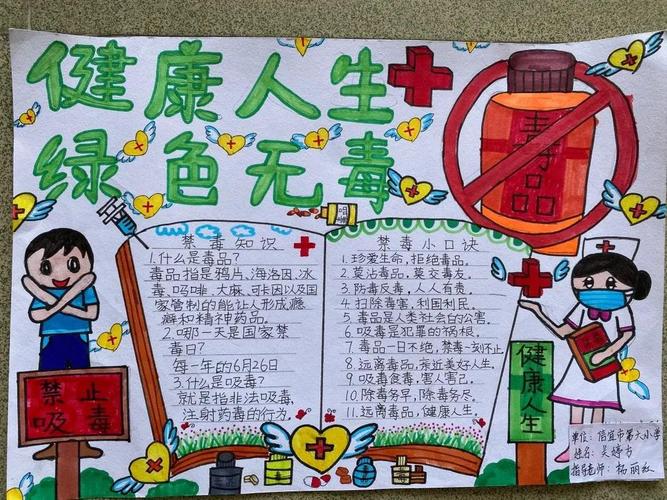 健康人生
绿色无毒
毒品
禁毒知识
1.什么是毒品?
毒品指是鸦片、海洛因、冰
毒、吗啡、大麻、可卡因以及国
家管制的能让人形成瘾
癖和精神药品。
2.哪一天是国家禁
毒日?
每一年的6月26日
3.什么是吸毒?
就是指非法吸毒,
注射药毒的行为。
禁毒小口诀
1.珍爱生命,拒绝毒品。
2.莫沾毒品,莫交毒友。
3.防毒反毒,人人有责。
4.扫除毒害,利国利民。
5.毒品是人类社会白的公害。
6.吸毒是犯罪的祸根。
7.毒品一日不绝,禁毒一刻不止
8.远离毒品,亲近美好人生。
9.吸毒食毒,害人害己。
10.除毒务早,除毒务尽。
11.远离毒品,健康人生。
禁止
吸毒
健康人生
单位:信宜市第六小学
姓名:吴婷方
指导老师:杨丽